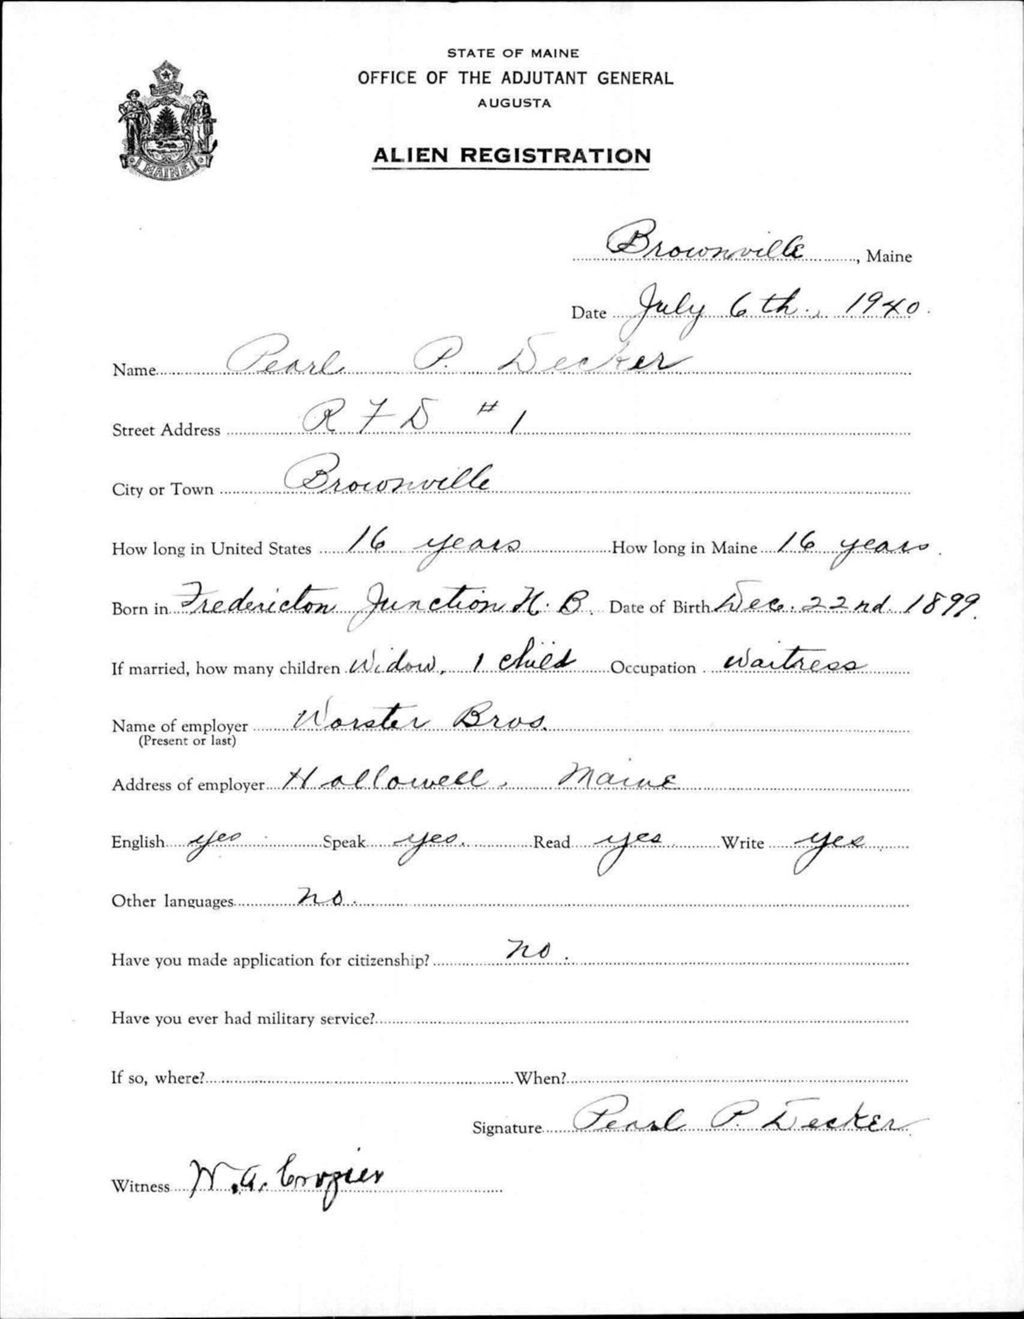 STATE OF MAINE
OFFICE OF THE ADJUTANT GENERAL
AUGUSTA
ALIEN REGISTRATION
MAINE
Brownville, Maine
Date July 6th., 1940.
Name Pearl P. Decker
Street Address R F D #1
City or Town Brownville
How long in United States 16 years How long in Maine 16 years.
Born in Fredericton Junction N. B. Date of Birth Dec. 22nd. 1899.
If married, how many children Widow, 1 child Occupation Waitress
Name of employer Worster Bros.
(Present or last)
Address of employer Hallowell, Maine
English yes Speak yes. Read yes Write yes
Other languages no.
Have you made application for citizenship? no.
Have you ever had military service?
If so, where? When?
Signature Pearl P. Decker
Witness W. A. Crozier